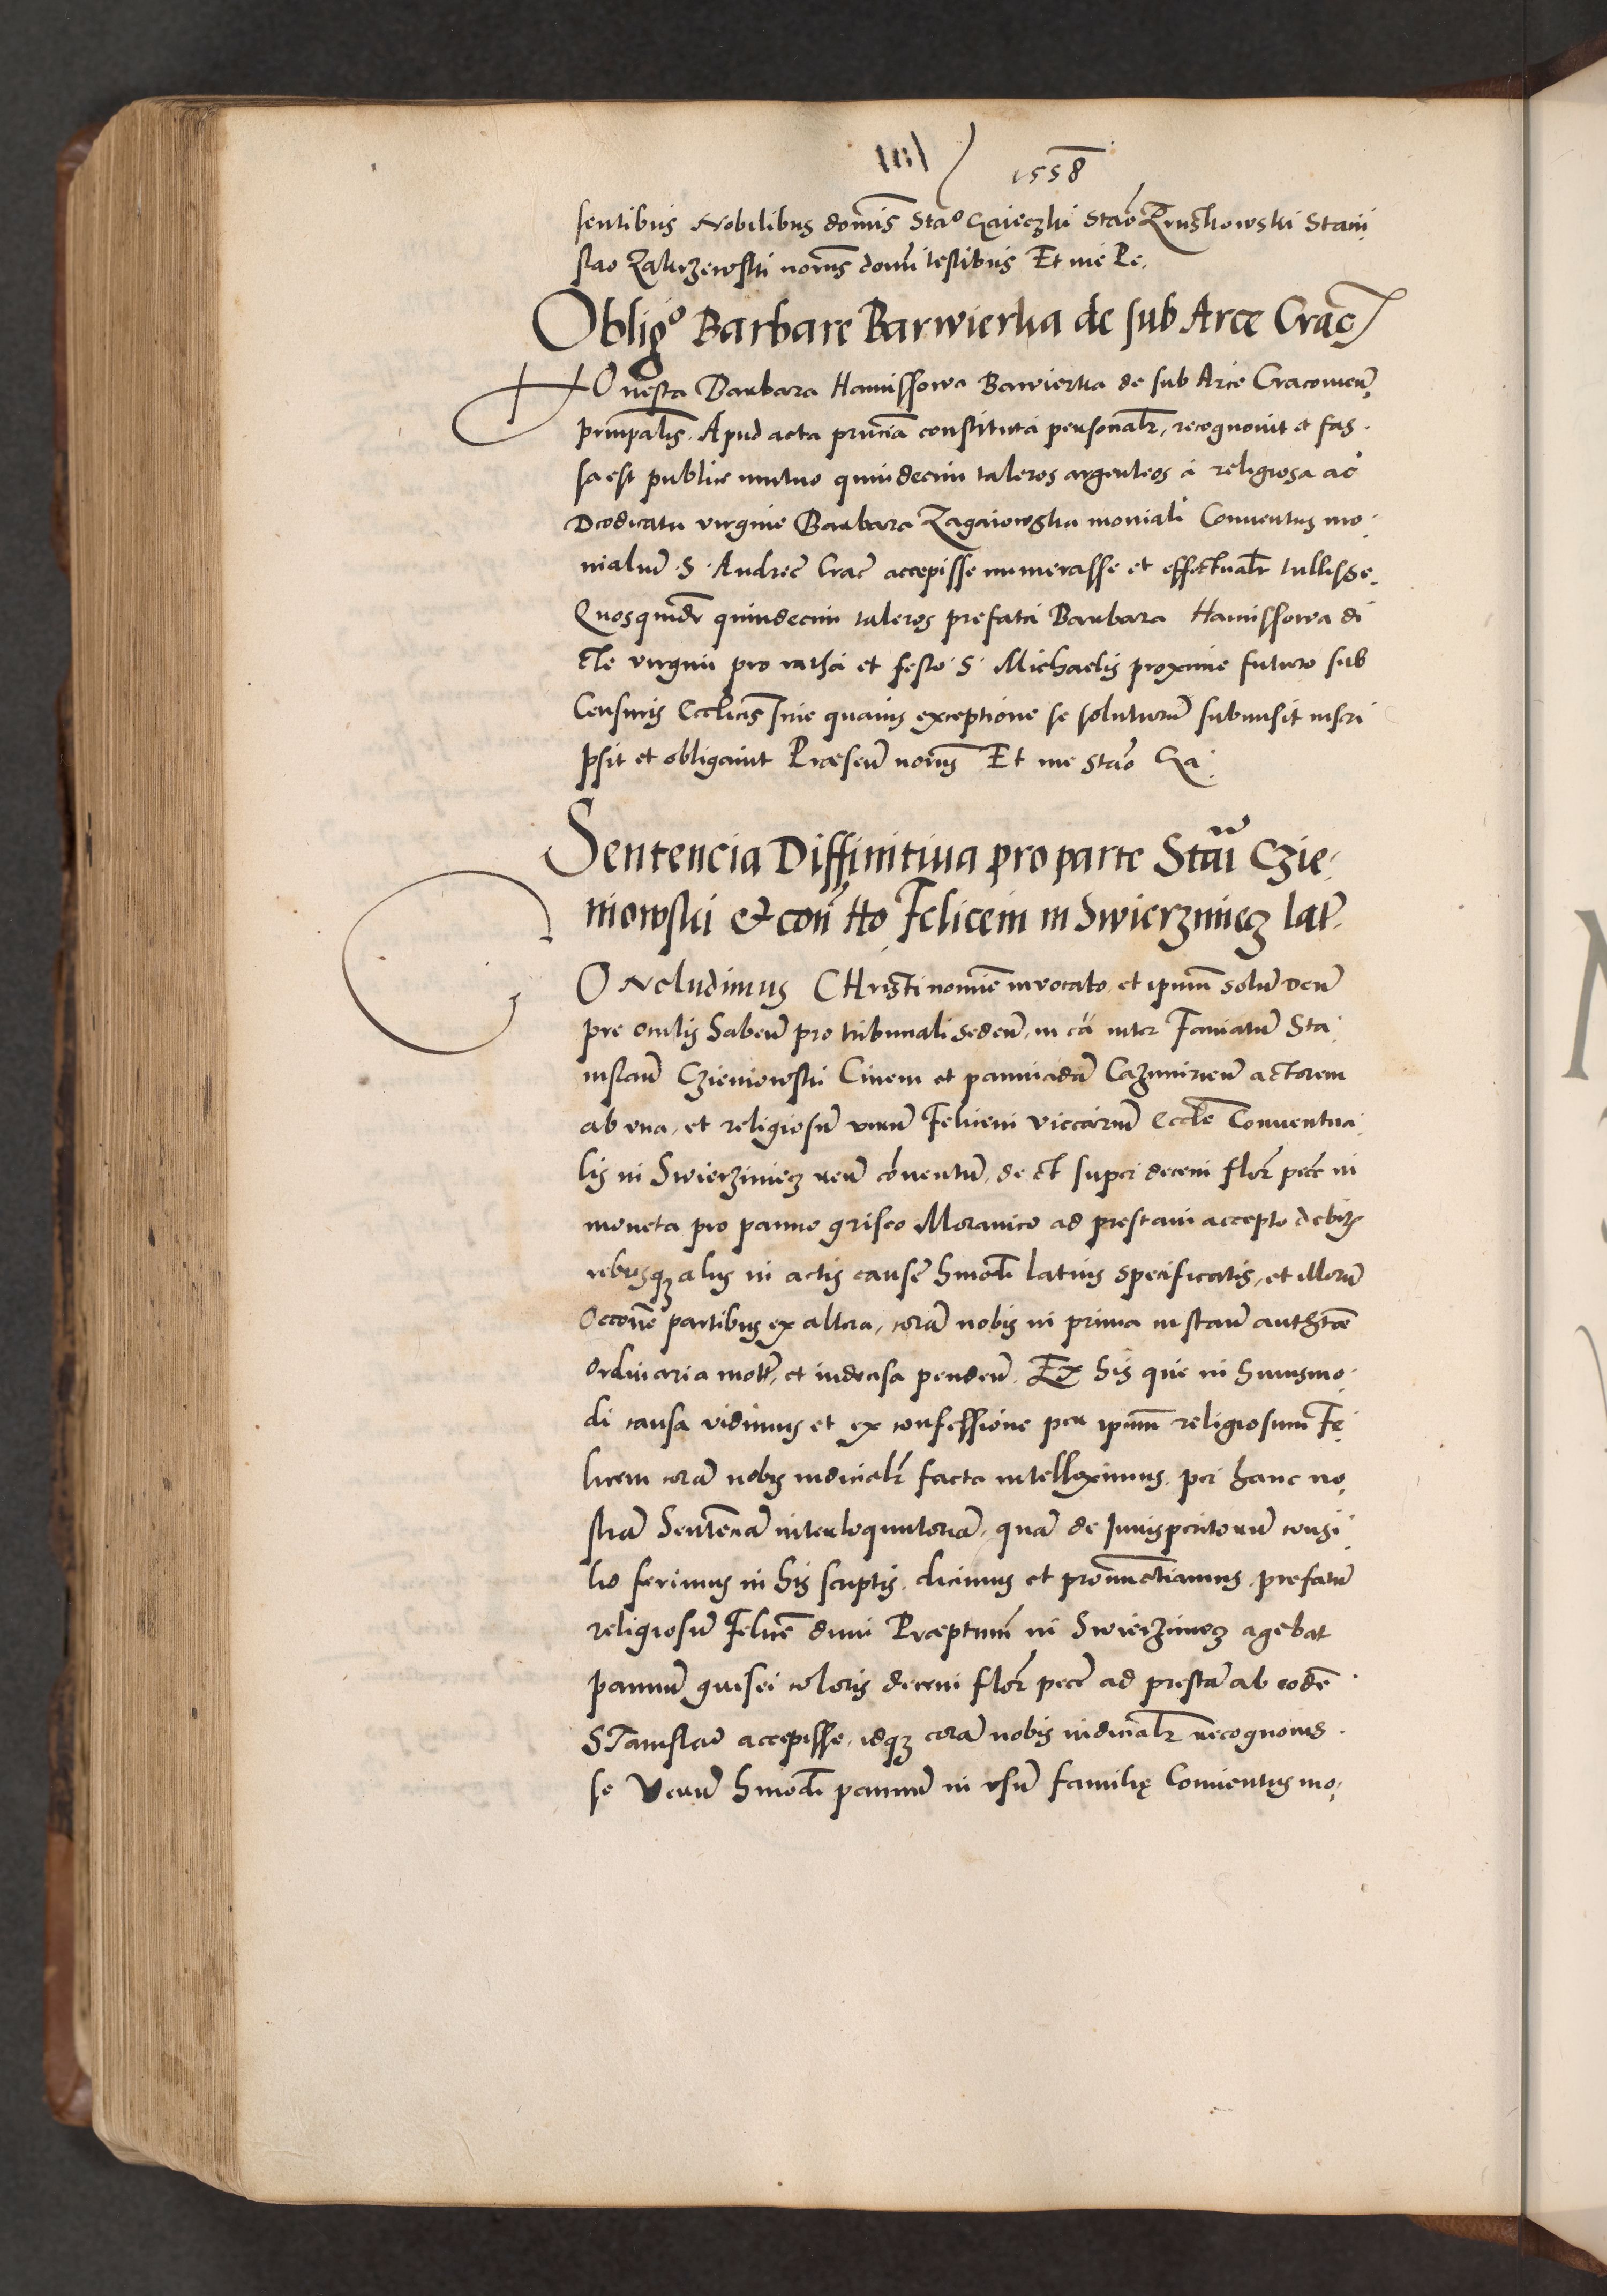 1558
sentibus Nobilibus domīs Sta° Gaieczki Staō Kruszkowski Stani
slao Zakrzewski norijs domī testibus Et me Pe.
Oblig° Barbare Barwierka de sub Arce Crac
Honesta Barbara Hanussowa Barwierka de sub Arce Cracovień
principalis. Apud acta prūcia constituta personalr, recognovit et fas
sa est publice mutuo quindecim taleros argenteos a religiosa ac
Dedicata virgine Barbara Zagaiowska moniali Conventus mo
nialiū S. Andreē Crac̄ accepisse numerasse et effectualr tullisse.
Quosquidē quindecim taleros prefata Barbara Hanussowa di
cte virgini pro et festo S. Michaelis proxime futuro sub
Censuris Eccleīcis sine quavis exceptione se soluturū submisit inscri
psit et obligavit Præsen̄ norijs Et me Staō Ga
Sentencia Diffinitiva pro parte Stāi Czie
niowski & con̄ tto Felicem in Swierziniecz lat̄
COncludimus CHristi nomīe invocato, et ipm̄ solū Deū
pre oculis haben̄ pro tribunali seden̄, in cā inter Famatū Sta
nislaū Czieniowski Civem et pannicidā Cazimirien̄ actorem
ab una, et religiosū virum Felicem viccariū Eccle Conventua
lis in Swierziniecz reū conventū, de et super decem flor̄ pecc̄ in
moneta pro panno griseo Moravico ad prestam accepto debitis
rebusqʒ alijs in actis causē hmodi latius specificatis, et illorū
occone partibus ex altera, corā nobis in prima instan̄ authtāe
ordinaria mot̄, et indecisa penden̄. Ex his que in huiusmo
di causa vidimus et ex confessione per ipm̄ religiosum Fe
licem corā nobis iudicialr̄ facta intelleximus, per hanc no
strā Sentenciā interloquutoriā, quā de Jurisperitorū consi
lio ferimus in his scriptis, dicimus et pronunctiamus, prefatū
religiosū Felicē dum Præptum̄ in Swierziniecz agebat
pannū grisei coloris decem flor̄ pecc̄ ad prestā ab eodē
STanislao accepisse, idqʒ corā nobis iudicialr̄ recognovis
se Verū hmodi pannū in usū familię Conventus mo